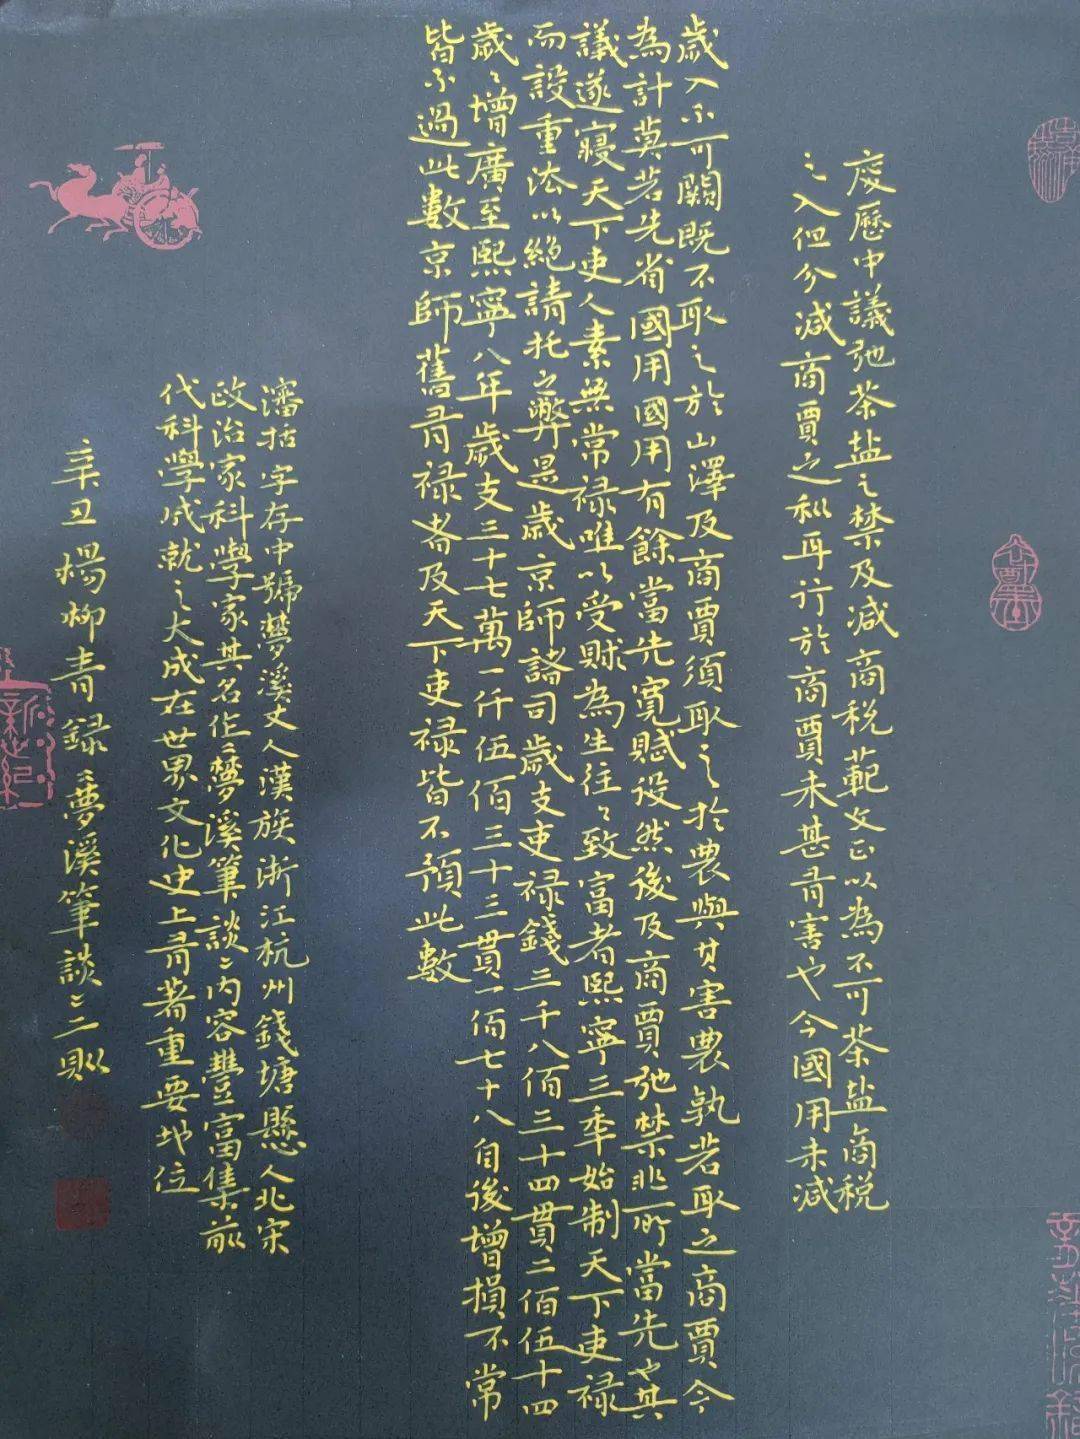 慶歷中議弛茶盐之禁及减商税範文正以為不可茶盐商税
之入但分减商賈之利耳行於商賈未甚有害也今國用未减
歲入不可闕既不取之於山澤及商賈須取之於農與其害農孰若取之商賈今
為計莫若先省國用國用有餘當先寬賦役然後及商賈弛禁非所當先也其
議遂寢天下吏人素無常禄唯以受賕為生往々致富者熙寧三年始制天下吏禄
而設重法以絕請托之弊是歲京師諸司歲支吏禄錢三千八佰三十四貫二佰伍十四
歲々增廣至熙寧八年歲支三十七萬一仟伍佰三十三貫一佰七十八自後增損不常
皆不過此數京師舊有禄者及天下吏禄皆不預此數
瀋括字存中號夢溪丈人漢族浙江杭州錢塘縣人北宋
政治家科學家其名作夢溪筆談內容豐富集前
代科學成就之大成在世界文化史上有著重要地位
辛丑楊柳青録夢溪筆談二則